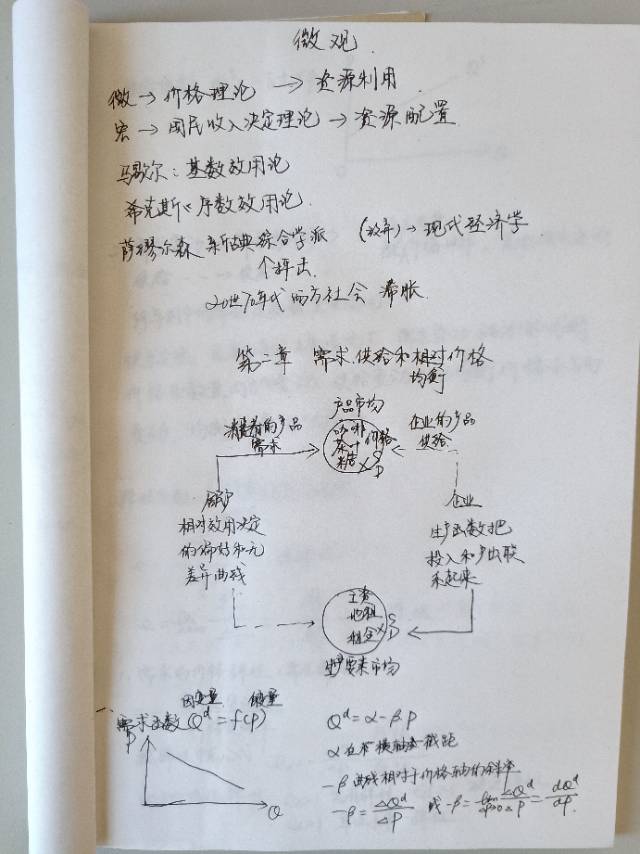 微观.
微→价格理论 → 资源利用
宏→国民收入决定理论→资源配置
马歇尔：基数效用论
希克斯：序数效用论.
萨缪尔森 新古典综合学派 →现代经济学
个抨击.
20世70年代 西方社会 滞胀.
第二章 需求.供给和相对价格
均衡
产品市均
消费者的产品
需求
咖啡
茶叶 价格
糖
S
D
企业的产品
供给
居户
相对效用决定
的偏好和无
差异曲线
企业
生产函数把
投入和产出联
系起来
工资
地租
租金
S
D
生产要素市均
一、
因变量
需求函数 Q^d = f(P)
P
Q
Q^d = α - β.P
α 在横轴截距
-β 曲线相对于价格轴的斜率
-β = ΔQ^d/ΔP 或 -β = lim ΔP→0 ΔQ^d/ΔP = dQ^d/dP.